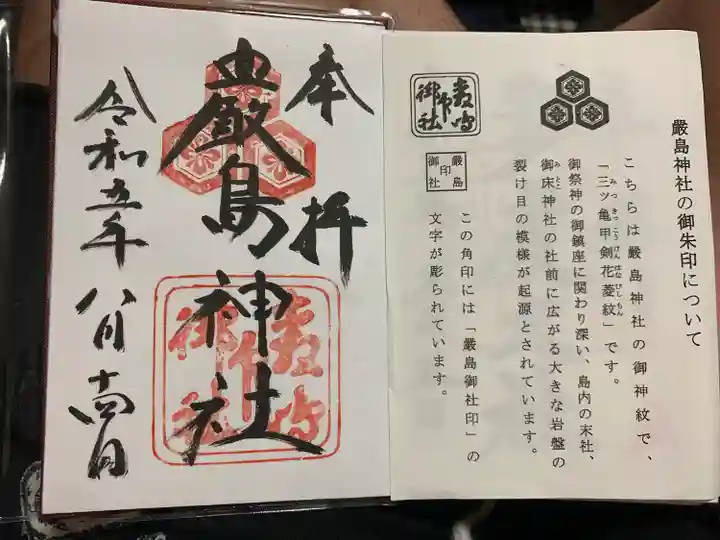 厳島神社の御朱印について
こちらは厳島神社の御神紋で、
「三ッ亀甲剣花菱紋」です。
みつきっこうけんはなびしもん
御祭神の御鎮座に関わり深い、島内の末社、
御床神社の社前に広がる大きな岩盤の
みとこ
裂け目の模様が起源とされています。
この角印には「厳島御社印」の
文字が彫られています。
厳島
印
御社
奉拝
嚴島神社
令和五年八月十四日